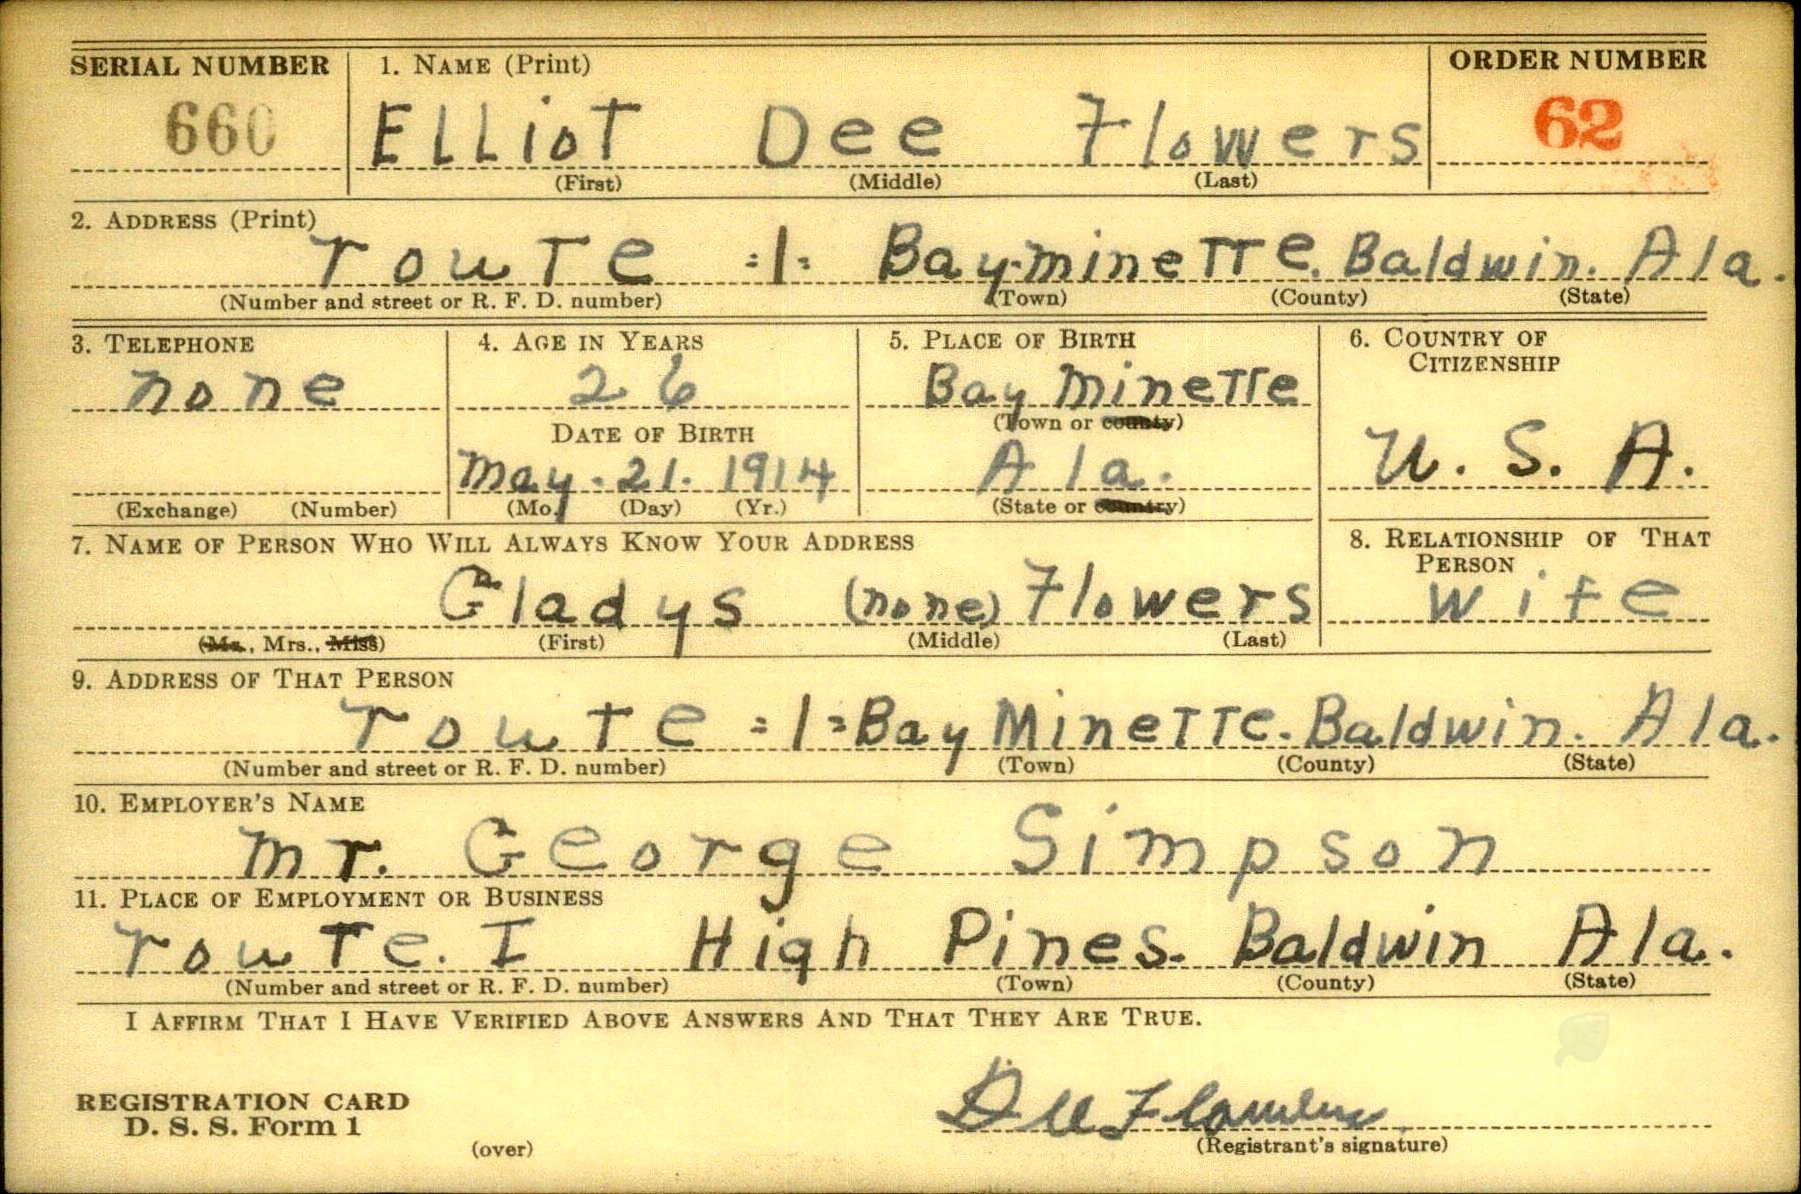 SERIAL NUMBER 1. NAME (Print) ORDER NUMBER
660 ELLioT Dee Flowers 62
(First) (Middle) (Last)
2. ADDRESS (Print)
rouTe =1= Bay-mineTTe. Baldwin. Ala.
(Number and street or R. F. D. number) (Town) (County) (State)
3. TELEPHONE 4. AGE IN YEARS 5. PLACE OF BIRTH 6. COUNTRY OF
CITIZENSHIP
none 26 Bay MineTTe
(Town or county)
DATE OF BIRTH
May. 21. 1914 Ala. U. S. A.
(Exchange) (Number) (Mo.) (Day) (Yr.) (State or country)
7. NAME OF PERSON WHO WILL ALWAYS KNOW YOUR ADDRESS 8. RELATIONSHIP OF THAT
PERSON
Gladys (none) Flowers wife
(Mr., Mrs., Miss) (First) (Middle) (Last)
9. ADDRESS OF THAT PERSON
route =1= Bay MineTTe. Baldwin. Ala.
(Number and street or R. F. D. number) (Town) (County) (State)
10. EMPLOYER'S NAME
mr. George Simpson
11. PLACE OF EMPLOYMENT OR BUSINESS
rouTe. I High Pines. Baldwin Ala.
(Number and street or R. F. D. number) (Town) (County) (State)
I AFFIRM THAT I HAVE VERIFIED ABOVE ANSWERS AND THAT THEY ARE TRUE.
REGISTRATION CARD
D. S. S. Form 1
Dee Flowers
(over) (Registrant's signature)